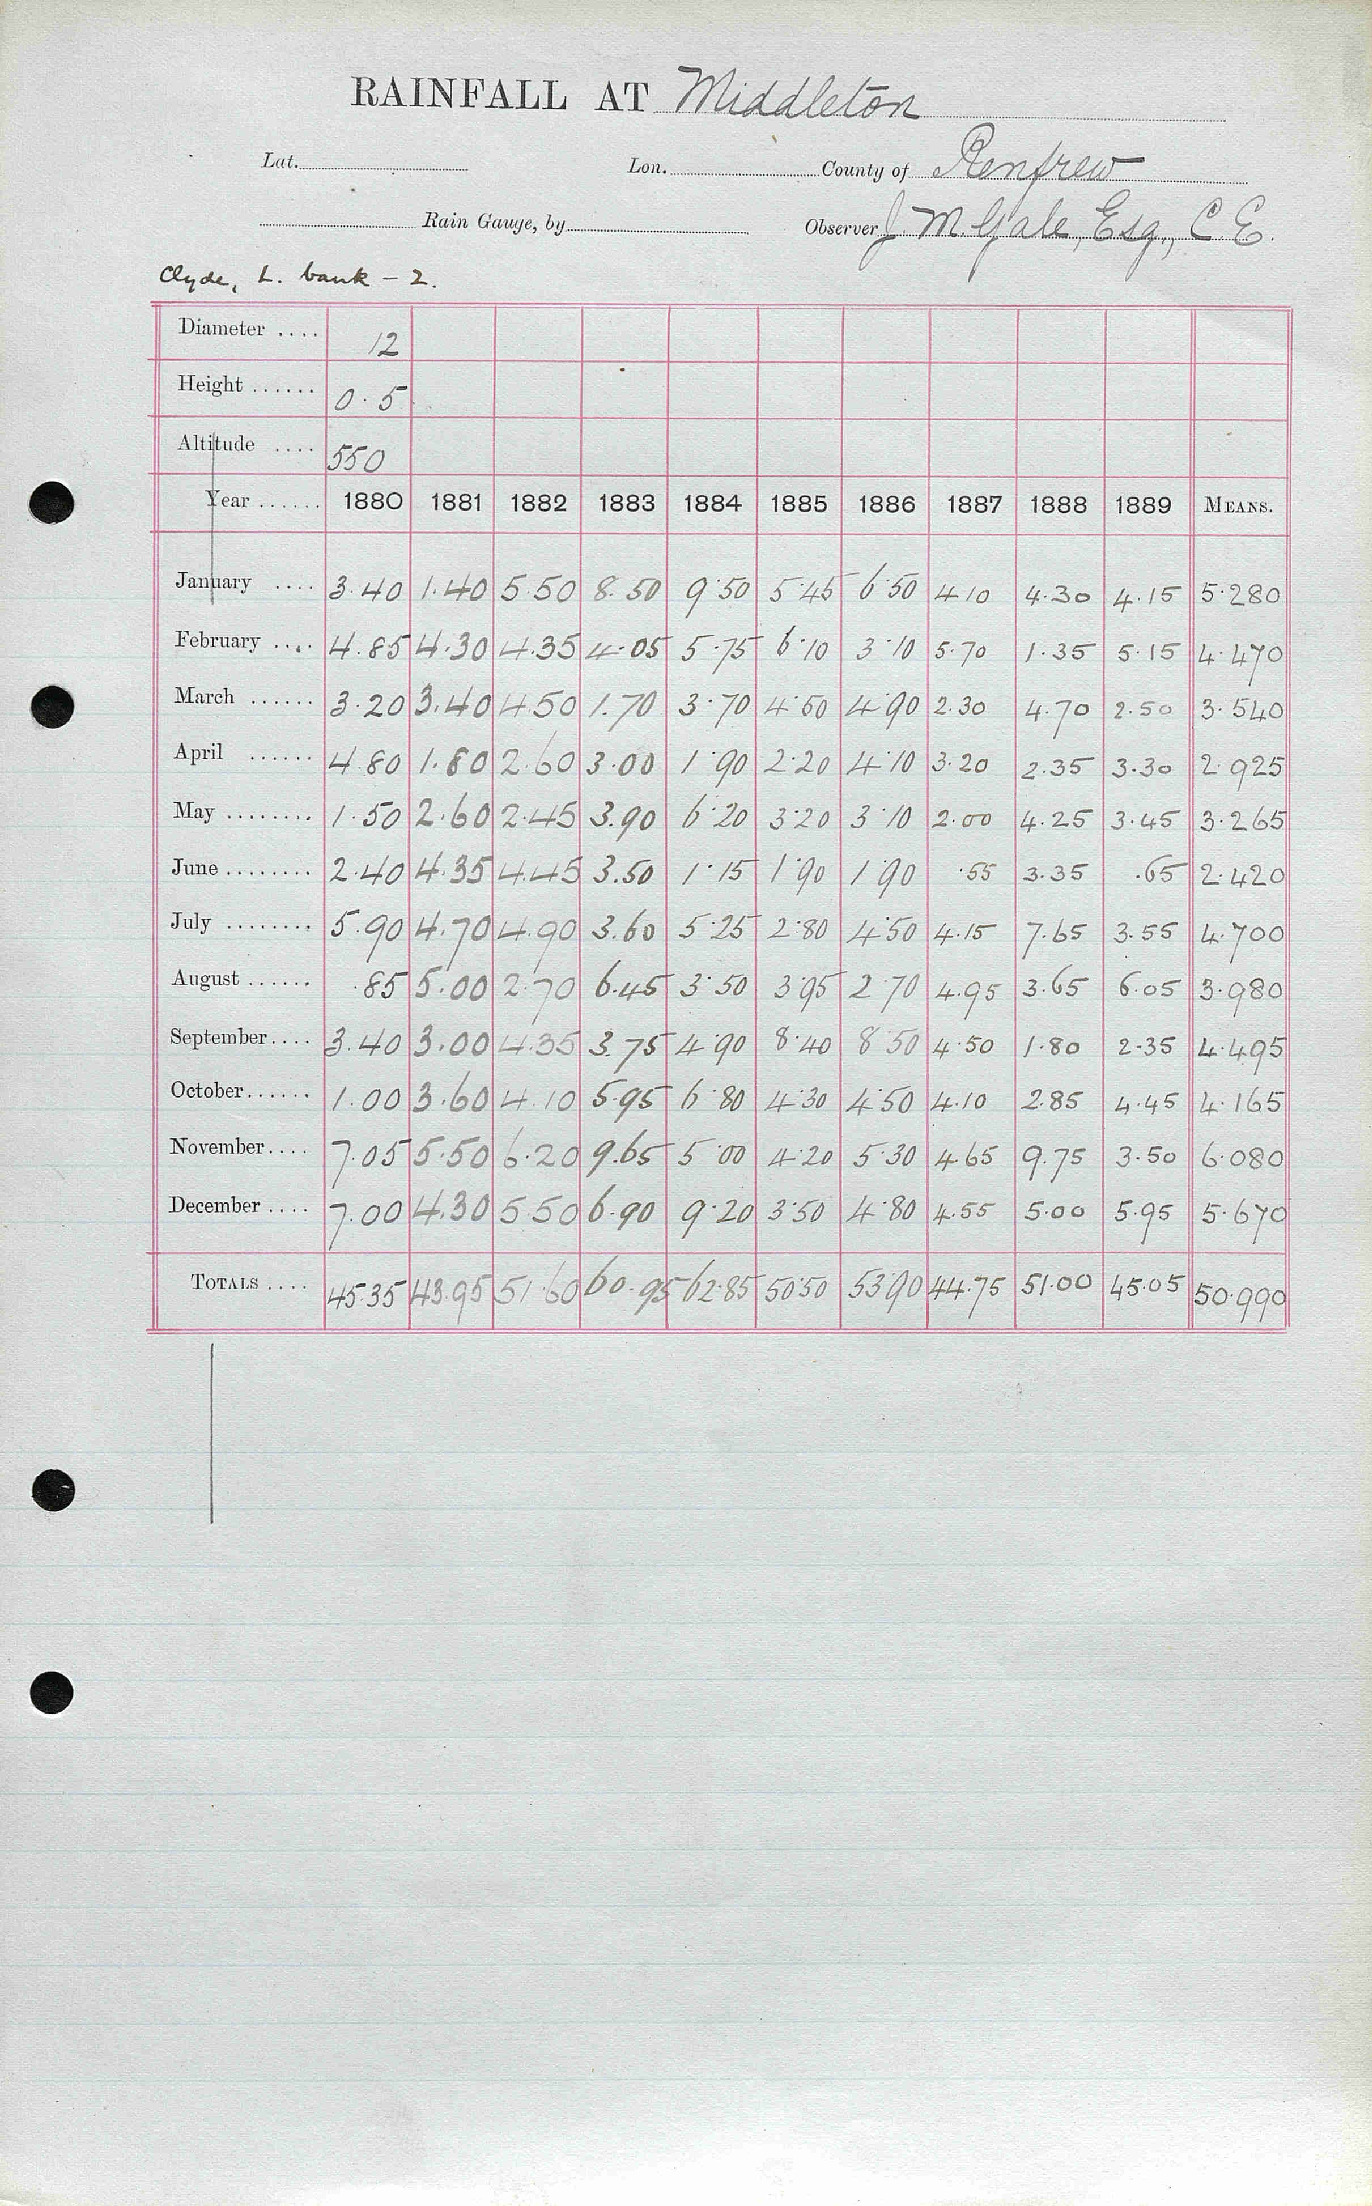 RAINFALL AT Middleton
Lat. Lon. County of Renfrew
Rain Gauge, by Observer J. M. Gale, Esq., C. E.
Clyde, L. bank - 2.
Diameter .... 12
Height ...... 0.5
Altitude .... 550
Year ...... 1880 1881 1882 1883 1884 1885 1886 1887 1888 1889 MEANS.
January .... 3.40 1.40 5.50 8.50 9.50 5.45 6.50 4.10 4.30 4.15 5.280
February .... 4.85 4.30 4.35 4.05 5.75 6.10 3.10 5.70 1.35 5.15 4.470
March ...... 3.20 3.40 4.50 1.70 3.70 4.50 4.90 2.30 4.70 2.50 3.540
April ...... 4.80 1.80 2.60 3.00 1.90 2.20 4.10 3.20 2.35 3.30 2.925
May ........ 1.50 2.60 2.45 3.90 6.20 3.20 3.10 2.00 4.25 3.45 3.265
June ........ 2.40 4.35 4.45 3.50 1.15 1.90 1.90 .55 3.35 .65 2.420
July ........ 5.90 4.70 4.90 3.60 5.25 2.80 4.50 4.15 7.65 3.55 4.700
August ...... .85 5.00 2.70 6.45 3.50 3.95 2.70 4.95 3.65 6.05 3.980
September .... 3.40 3.00 4.35 3.75 4.90 8.40 8.50 4.50 1.80 2.35 4.495
October ...... 1.00 3.60 4.10 5.95 6.80 4.30 4.50 4.10 2.85 4.45 4.165
November .... 7.05 5.50 6.20 9.65 5.00 4.20 5.30 4.65 9.75 3.50 6.080
December .... 7.00 4.30 5.50 6.90 9.20 3.50 4.80 4.55 5.00 5.95 5.670
TOTALS .... 45.35 43.95 51.60 60.95 62.85 50.50 53.90 44.75 51.00 45.05 50.990